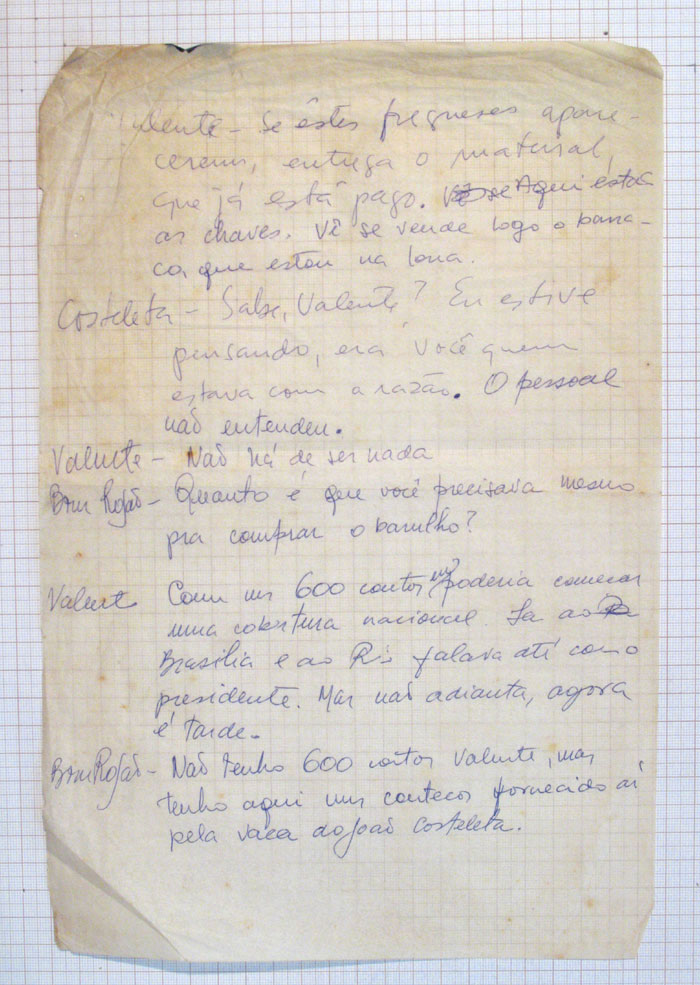 Valente – Se êstes freguezes apare-
cerem, entrega o material,
que já está pago. Aqui estão
as chaves. Vê se vende logo o barra-
co, que estou na lona.
Costeleta – Sabe, Valente? Eu estive
pensando, era você quem
estava com a razão. O pessoal
não entendeu.
Valente – Não há de ser nada
Bom Rojão – Quanto é que você precisava mesmo
pra comprar o barulho?
Valente Com uns 600 contos poderia comecar
uma cobertura nacional. Ia ao
Brasilia e ao Rio falava até com o
presidente. Mas não adianta, agora
é tarde.
Bom Rojão – Não tenho 600 contos Valente, mas
tenho aqui uns contecos fornecido aí
pela vaca do João Costeleta.